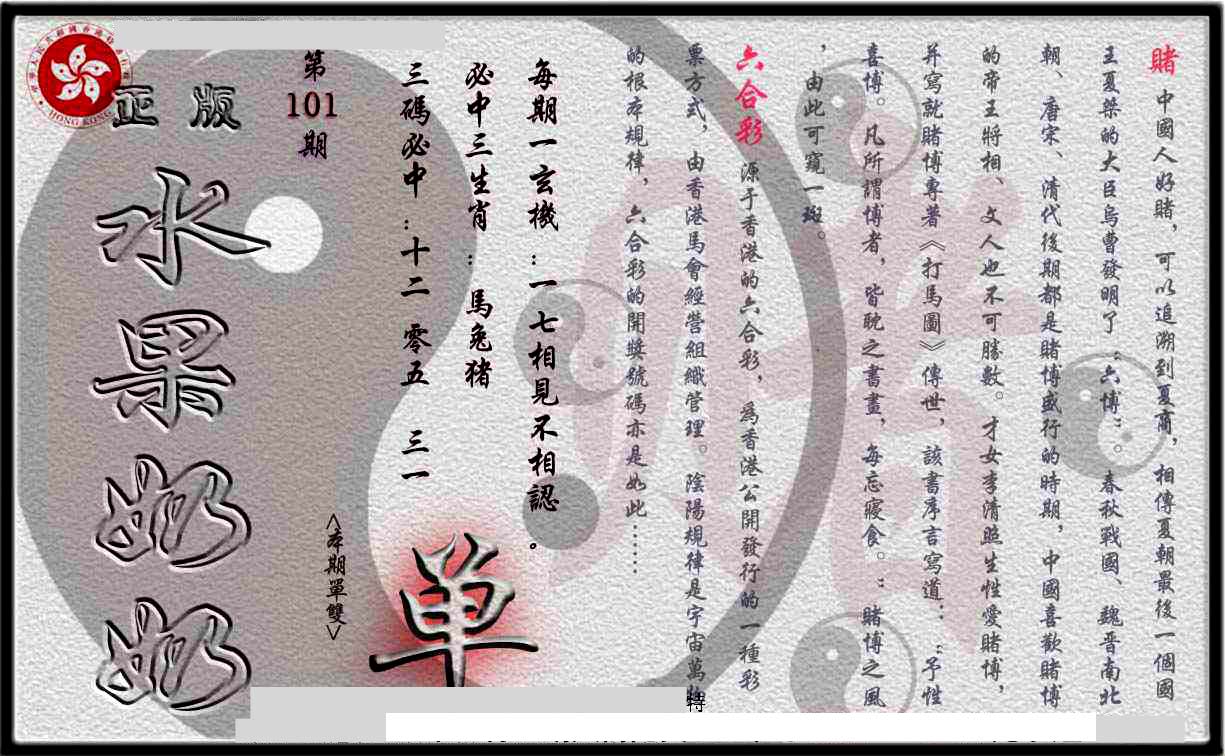 賭 中國人好賭，可以追溯到夏商，相傳夏朝最後一個國
王夏桀的大臣烏曹發明了“六博”。春秋戰國、魏晋南北
朝、唐宋、清代後期都是賭博盛行的時期，中國喜歡賭博
的帝王將相、文人也不可勝數。才女李清照生性愛賭博，
并寫就賭博專著《打馬圖》傳世，該書序言寫道：“予性
喜博。凡所謂博者，皆耽之書晝，每忘寢食。”賭博之風
，由此可窺一斑。
六合彩 源于香港的六合彩，為香港公開發行的一種彩
票方式，由香港馬會經營組織管理。陰陽規律是宇宙萬物
的根本規律，六合彩的開獎號碼亦是如此……
每期一玄機：一七相見不相認。
必中三生肖：馬兔猪
三碼必中：十二 零五 三一
<本期單雙>
单
第
101
期
正版
水果奶奶
HONG KONG
特